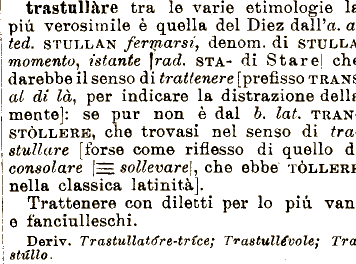 trastullàre tra le varie etimologie la
piú verosimile è quella del Diez dall'a. a.
ted. STULLAN fermarsi, denom. di STULLA
momento, istante [rad. STA- di Stare] che
darebbe il senso di trattenere [prefisso TRANS
al di là, per indicare la distrazione della
mente]: se pur non è dal b. lat. TRAN-
STÒLLERE, che trovasi nel senso di tra-
stullare [forse come riflesso di quello di
consolare [≡ sollevare], che ebbe TÒLLERE
nella classica latinità].
Trattenere con diletti per lo piú vani
e fanciulleschi.
Deriv. Trastullatóre-tríce; Trastullévole; Tra-
stúllo.